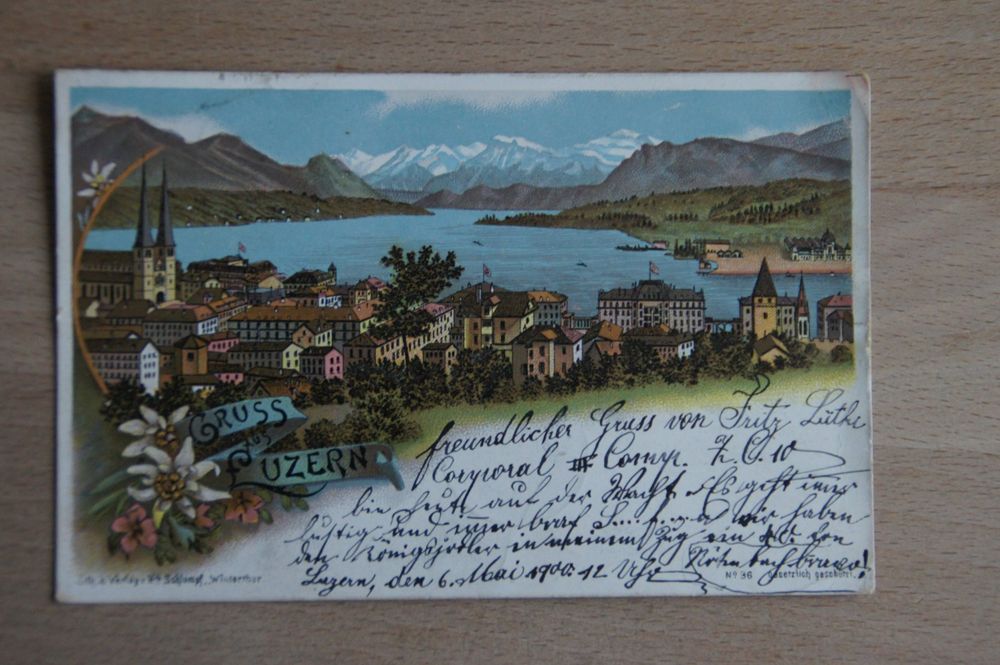 GRUSS
aus
LUZERN
freundlicher Gruss von Fritz Lüthi
Corporal III Comp.
bin heute auf der Wacht. Es geht immer
lustig und immer brav S....f...... a wir haben
den Königsjodler in meinem Zug ein von
Luzern, den 6. Mai 1900. 12 Uhr bravo!
Lith. u. Verlag v. Schlumpf, Winterthur
No 36 Gesetzlich geschützt.